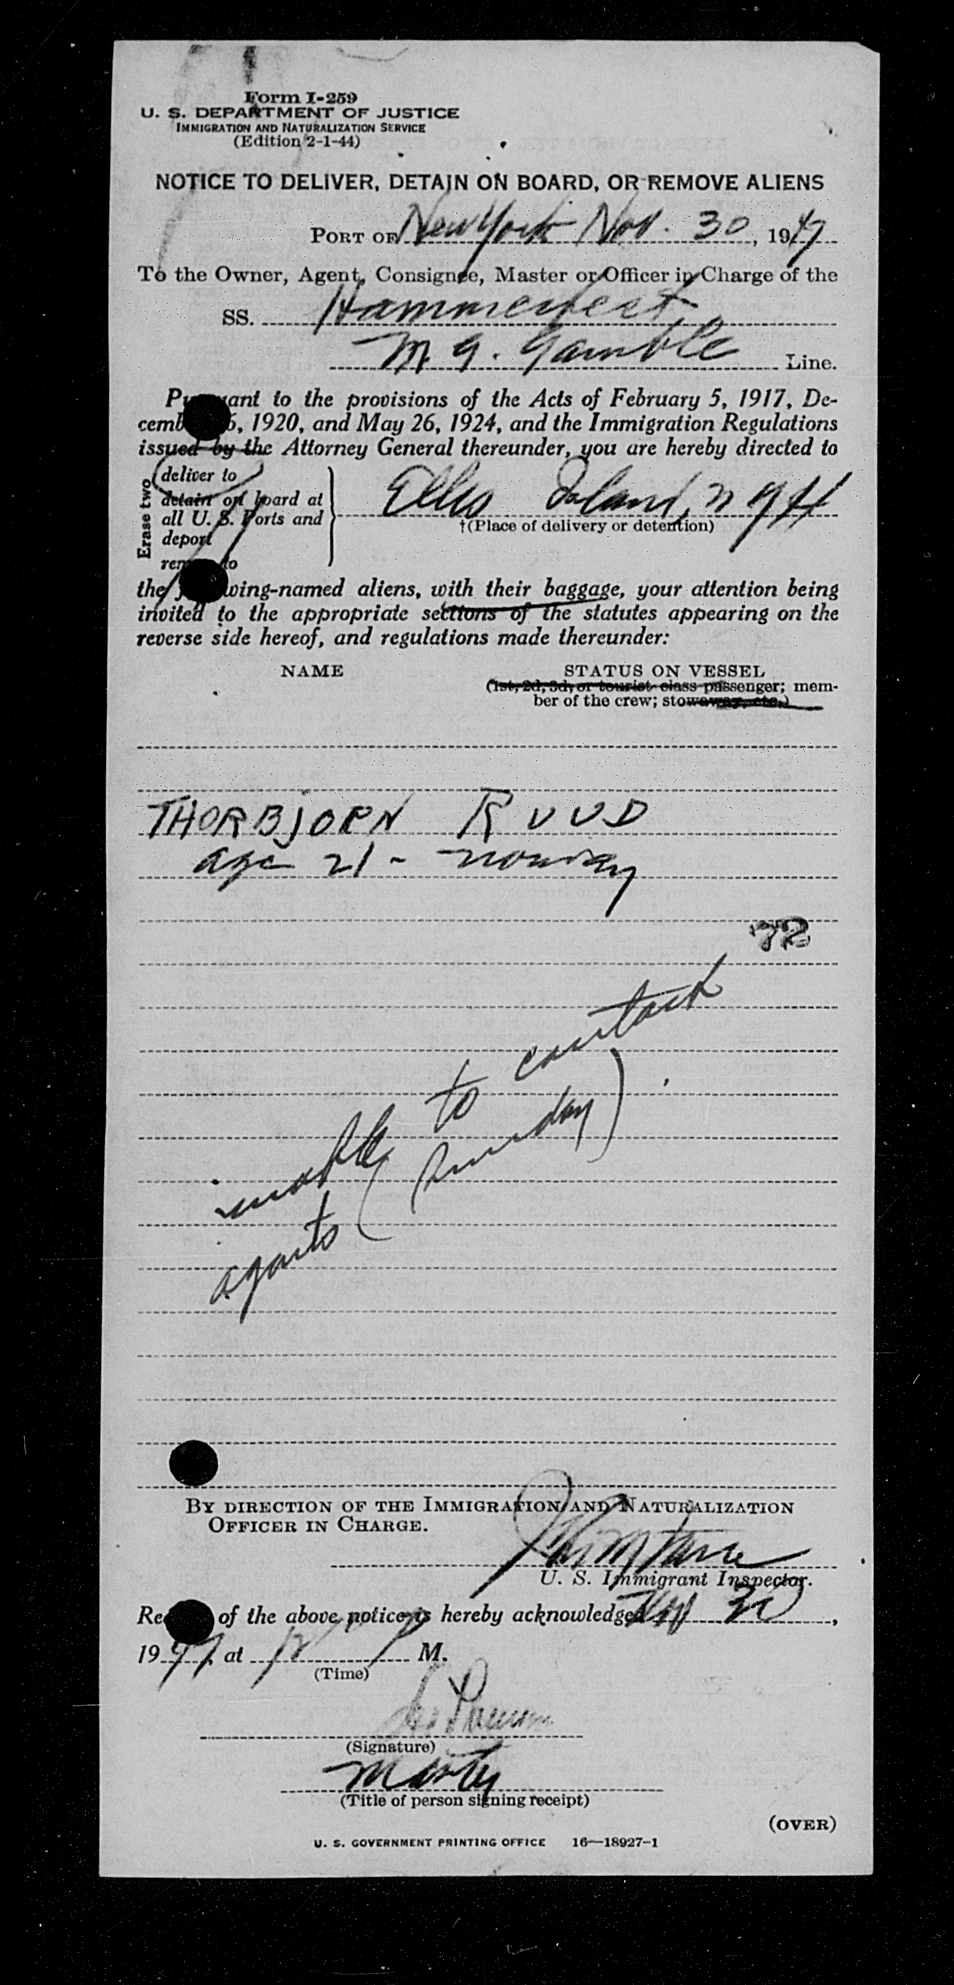 Form I-259
U. S. DEPARTMENT OF JUSTICE
IMMIGRATION AND NATURALIZATION SERVICE
(Edition 2-1-44)
NOTICE TO DELIVER, DETAIN ON BOARD, OR REMOVE ALIENS
PORT OF New York Nov. 30, 1947
To the Owner, Agent, Consignee, Master or Officer in Charge of the
SS. Hammerfest
M. G. Gamble Line.
Pursuant to the provisions of the Acts of February 5, 1917, De-
cember 26, 1920, and May 26, 1924, and the Immigration Regulations
issued by the Attorney General thereunder, you are hereby directed to
Erase two
deliver to
detain on board at
all U. S. Ports and
deport
remove to
Ellis Island, NYH
†(Place of delivery or detention)
the following-named aliens, with their baggage, your attention being
invited to the appropriate sections of the statutes appearing on the
reverse side hereof, and regulations made thereunder:
NAME STATUS ON VESSEL
(1st, 2d, 3d, or tourist class passenger; mem-
ber of the crew; stowaway, etc.)
THORBJORN RUUD
age 21 - Norway
72
unable to contact
agents (Sunday)
BY DIRECTION OF THE IMMIGRATION AND NATURALIZATION
OFFICER IN CHARGE.
U. S. Immigrant Inspector.
Receipt of the above notice is hereby acknowledged Nov 30,
1947 at 12 P M.
(Time)
(Signature)
(Title of person signing receipt)
(OVER)
U. S. GOVERNMENT PRINTING OFFICE 16—18927-1